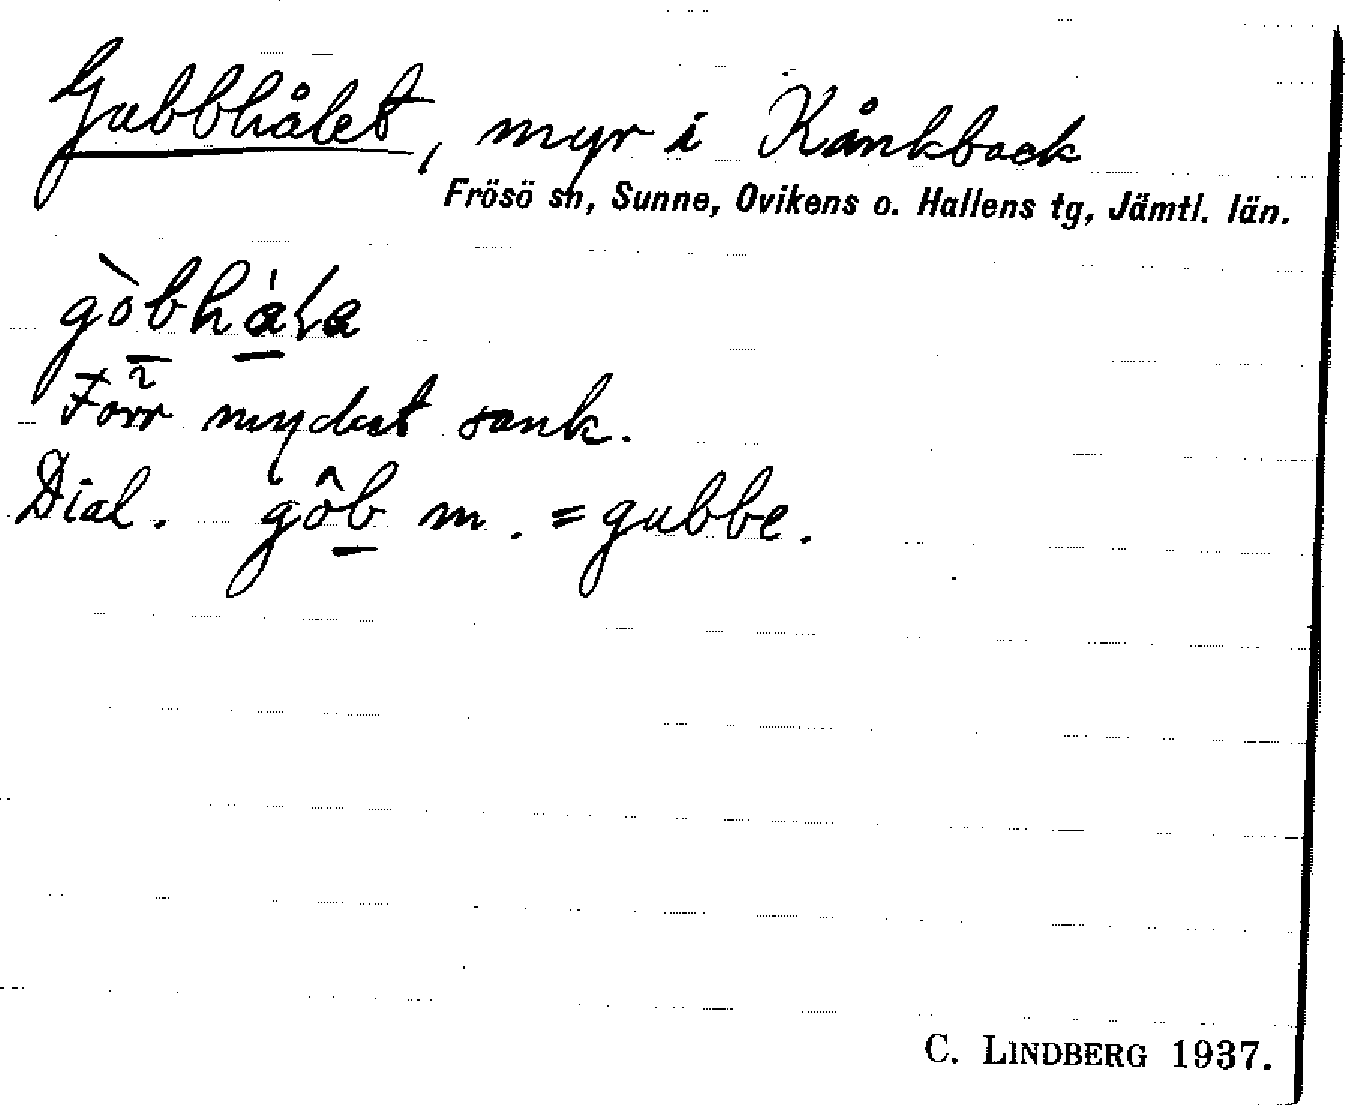 Gubbhålet, myr i Kånkback
Frösö sn, Sunne, Ovikens o. Hallens tg, Jämtl. län.
Förr mycket sank.
Dial. gôb m. = gubbe.
C. LINDBERG 1937.